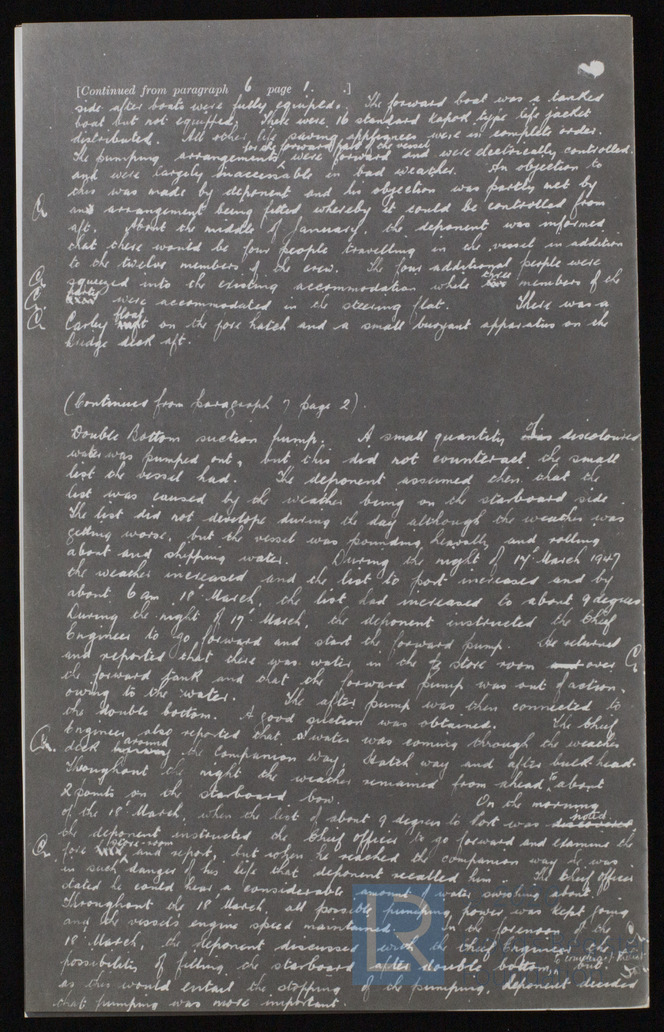 [Continued from paragraph 6 page 1. .]
side after boats were fully equiped. The forward boat was a tanked
boat but not equipped. There were 16 standard Kapok type life jacket
distributed. All other life saving appliances were in complete order.
for the forward part of the vessel
The pumping arrangements were forward and were electrically controlled.
and were largely inaccessible in bad weather. An objection to
this was made by deponent and his objection was partly met by
an arrangement being fitted whereby it could be controlled from
aft. About the middle of January, the deponent was informed
that there would be four people travelling in the vessel in addition
to the twelve members of the crew. The four additional people were
squeezed into the existing accommodation while three members of the
party were accommodated in the steering flat. There was a
Carley float on the fore hatch and a small buoyant apparatus on the
bridge deck aft.
(Continued from paragraph 7 page 2).
Double Bottom suction pump. A small quantity discoloured
water was pumped out, but this did not counteract the small
list the vessel had. The deponent assumed then that the
list was caused by the weather being on the starboard side.
The list did not develope during the day although the weather was
getting worse, but the vessel was pounding heavily and rolling
about and shipping water. During the night of 17' March 1947
the weather increased and the list to port increased and by
about 6 am 18' March, the list had increased to about 9 degrees.
During the night of 17' March, the deponent instructed the Chief
Engineer to go forward and start the forward pump. He returned
and reported that there was water in the store room over
the forward tank and that the forward pump was out of action.
owing to the water. The after pump was then connected to
the double bottom. A good suction was obtained. The Chief
Engineer also reported that water was coming through the weather
deck around the Companion way, Hatch way and after bulkhead.
Throughout the night the weather remained from ahead, to about
2 points on the starboard bow. On the morning
of the 18' March, when the list of about 9 degrees to Port was noted
the deponent instructed the Chief officer to go forward and examine the
fore store-room and report, but when he reached the companion way he was
in such danger of his life that deponent recalled him. The Chief officer
stated he could hear a considerable amount of water swishing about.
Throughout the 18' March, all possible pumping power was kept going
and the vessel's engine speed maintained. In the forenoon of the
18' March, the deponent discussed with the Chief Engineer the
possibility of filling the starboard after double bottom, but
as this would entail the stopping of the pumping, deponent decided
that pumping was more important.
LR